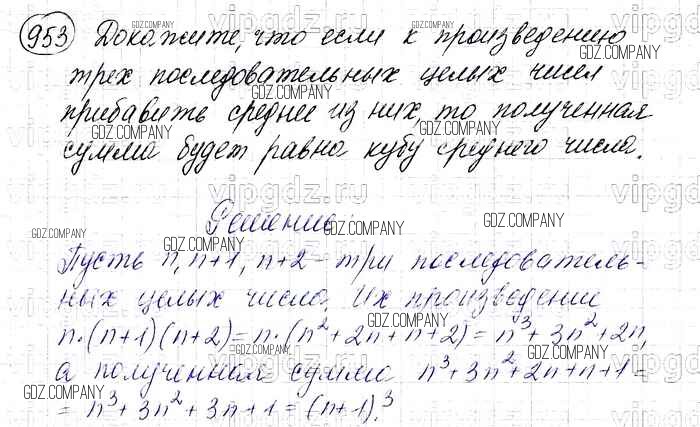 953 Докажите, что если к произведению
трех последовательных целых чисел
прибавить среднее из них, то полученная
сумма будет равна кубу среднего числа.
Решение.
Пусть n, n+1, n+2 - три последователь-
ных целых числа. Их произведение
n·(n+1)(n+2) = n·(n²+2n+n+2) = n³+3n²+2n,
а полученная сумма n³+3n²+2n+n+1 =
= n³+3n²+3n+1 = (n+1)³.